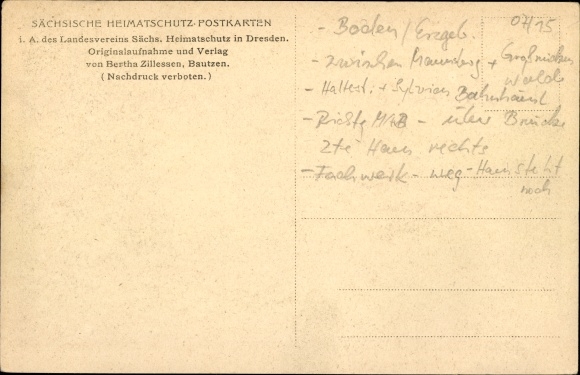 SÄCHSISCHE HEIMATSCHUTZ-POSTKARTEN
i. A. des Landesvereins Sächs. Heimatschutz in Dresden.
Originalaufnahme und Verlag
von Bertha Zillessen, Bautzen.
(Nachdruck verboten.)
07/15
- Boden/Erzgeb.
- zwischen Mauersberg + Großrückers
walde
- Haltest. +
- - über Brücke
2te Haus rechts
- Fachwerk - weg - Haus steht
noch